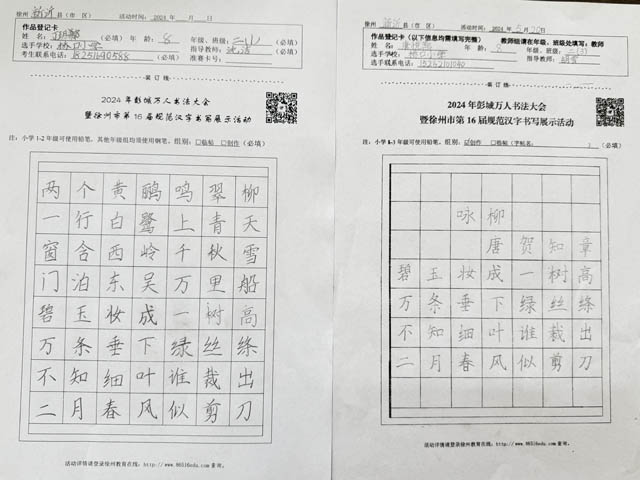 徐州 新沂 县（市 区） 活动时间：2024 年 月 日
作品登记卡
姓 名： （必填） 年 龄：8 年级、班级：二(1)（必填）
选手学校： 小学 指导教师：（必填）
考生联系电话：18251640588（必填） 准赛卡号：
装 订 线
2024 年彭城万人书法大会
暨徐州市第 16 届规范汉字书写展示活动
注：小学 1-2 年级可使用铅笔，其他年级组均须使用钢笔。组别：□临帖 □创作（必填）
两个黄鹂鸣翠柳
一行白鹭上青天
窗含西岭千秋雪
门泊东吴万里船
碧玉妆成一树高
万条垂下绿丝绦
不知细叶谁裁出
二月春风似剪刀
活动详情请登录徐州教育在线：http://www.86516edu.com 查询。
徐州 新沂 县（市 区） 活动时间：2024 年 5 月 20 日
作品登记卡（以下信息均需填写完整） 教师组请在年级、班级处填写：教师
姓 名： 年 龄：8 年级、班级：二(3)（必填）
选手学校： 小学 指导教师：
选手联系电话：15262101040
装 订 线
2024 年彭城万人书法大会
暨徐州市第 16 届规范汉字书写展示活动
注：小学 1-3 年级可使用铅笔。组别：☑创作 □临帖（字帖名： ）（必填）
咏柳
唐 贺知章
碧玉妆成一树高
万条垂下绿丝绦
不知细叶谁裁出
二月春风似剪刀
活动详情请登录徐州教育在线：http://www.86516edu.com 查询。